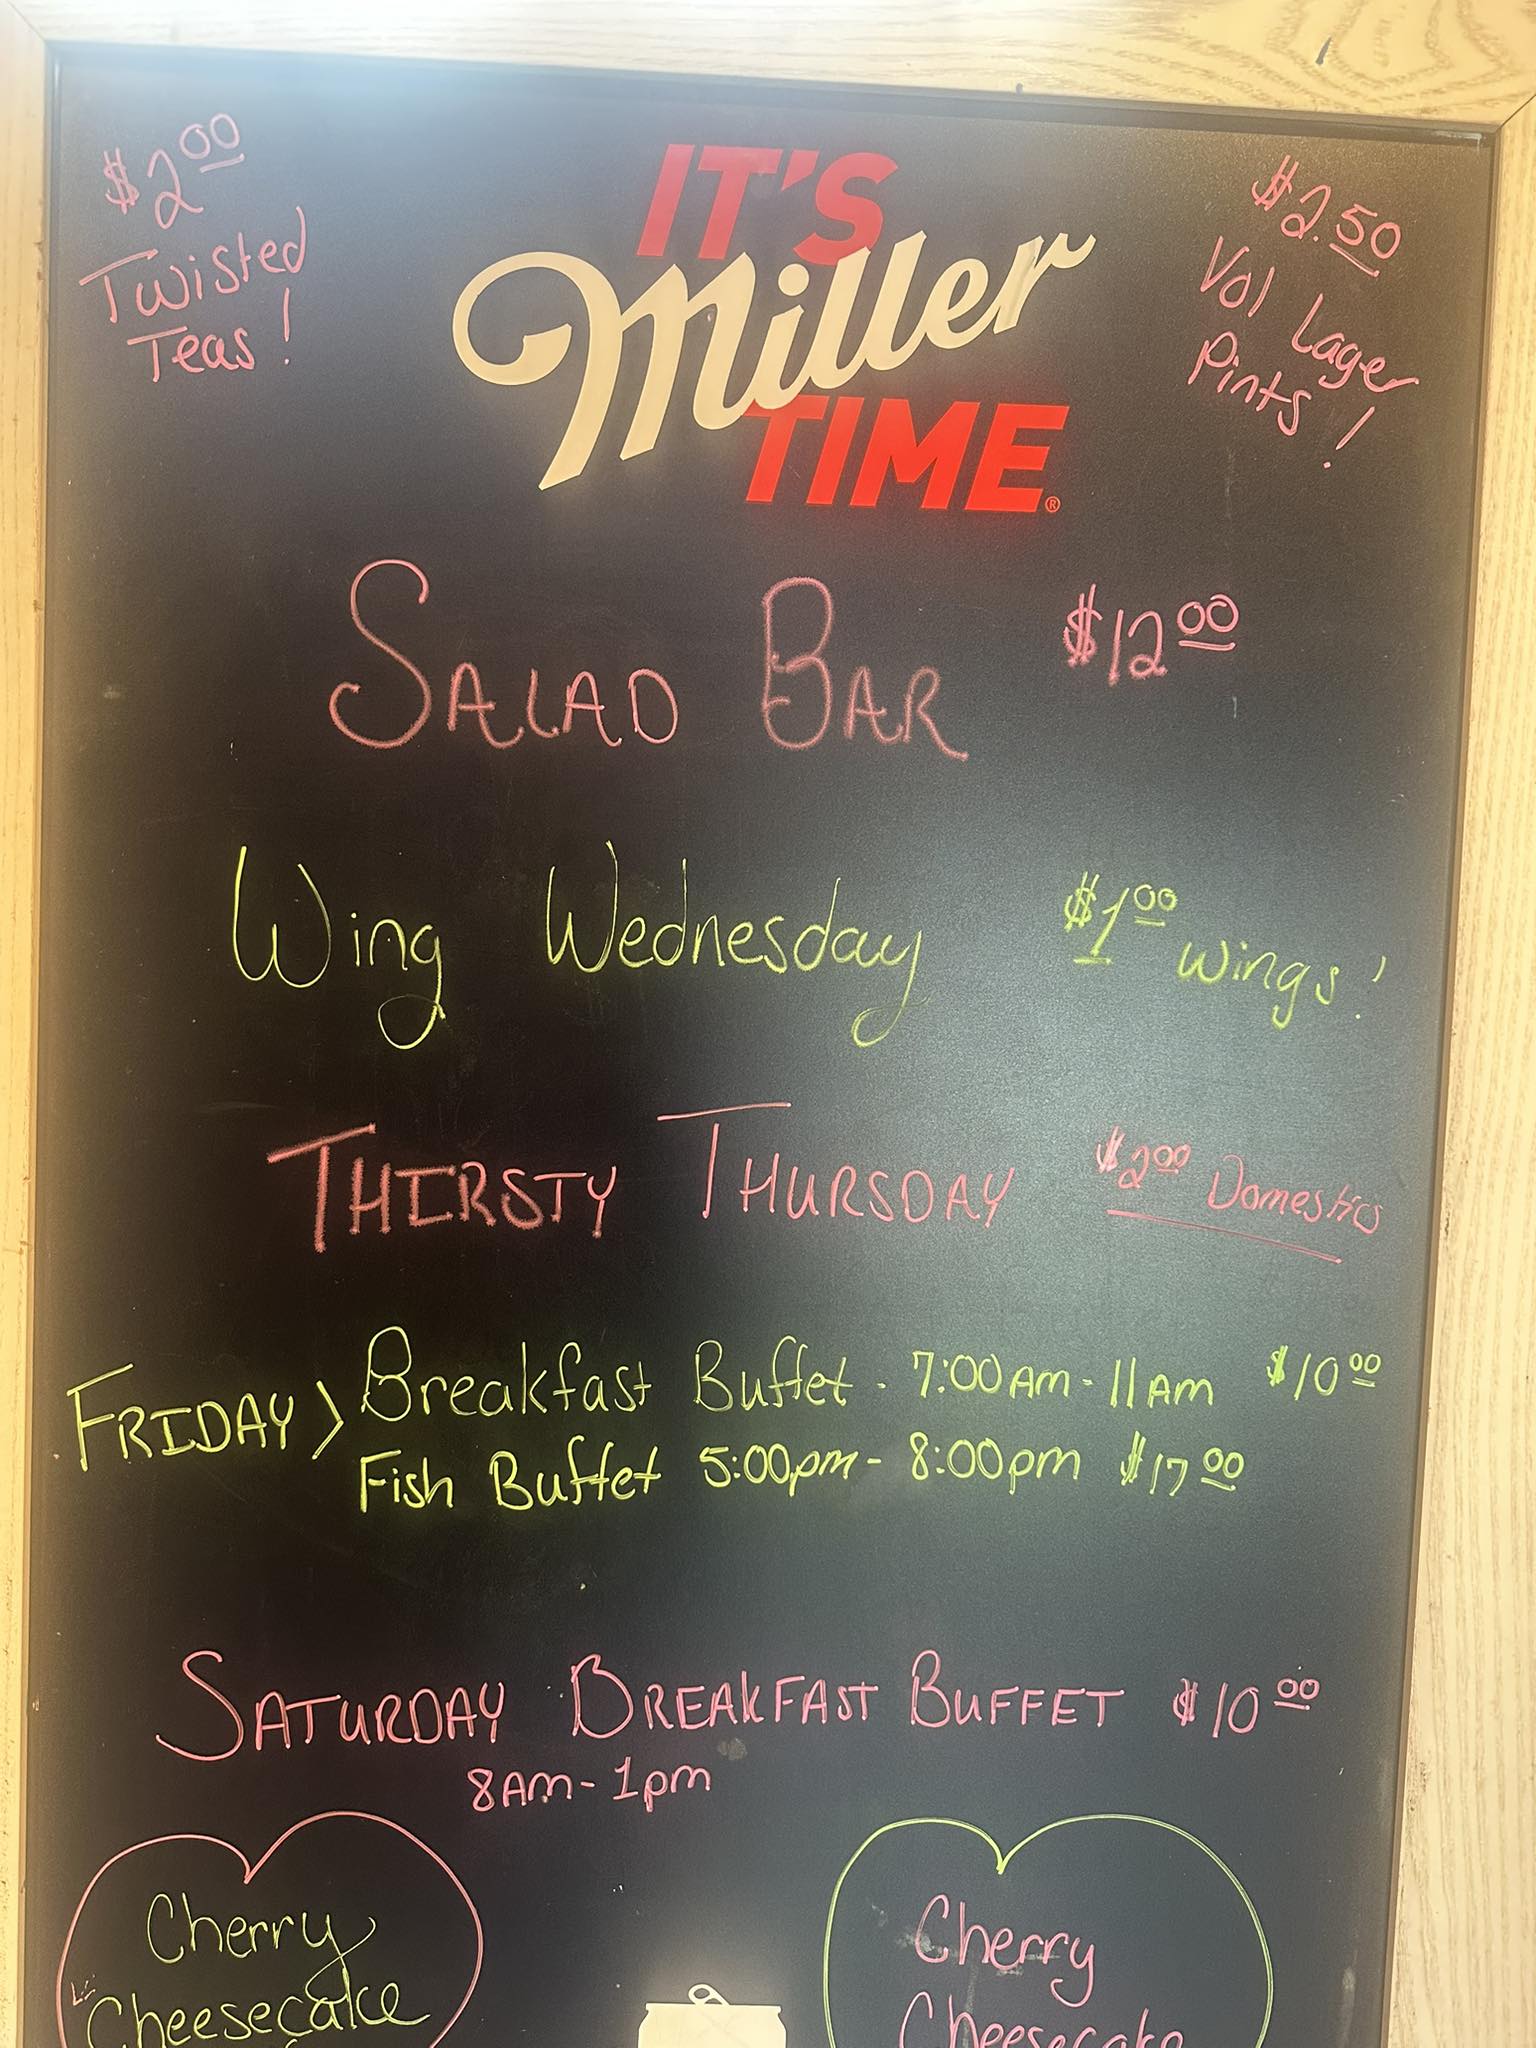 $2.00
Twisted
Teas!
IT'S
Miller
TIME®
$2.50
Vol Lager
Pints!
SALAD BAR $12.00
Wing Wednesday $1.00 wings!
THIRSTY THURSDAY $2.00 Domestics
FRIDAY > Breakfast Buffet - 7:00AM - 11AM $10.00
Fish Buffet 5:00pm - 8:00pm $17.00
SATURDAY BREAKFAST BUFFET $10.00
8AM - 1pm
Cherry
Cheesecake
Cherry
Cheesecake